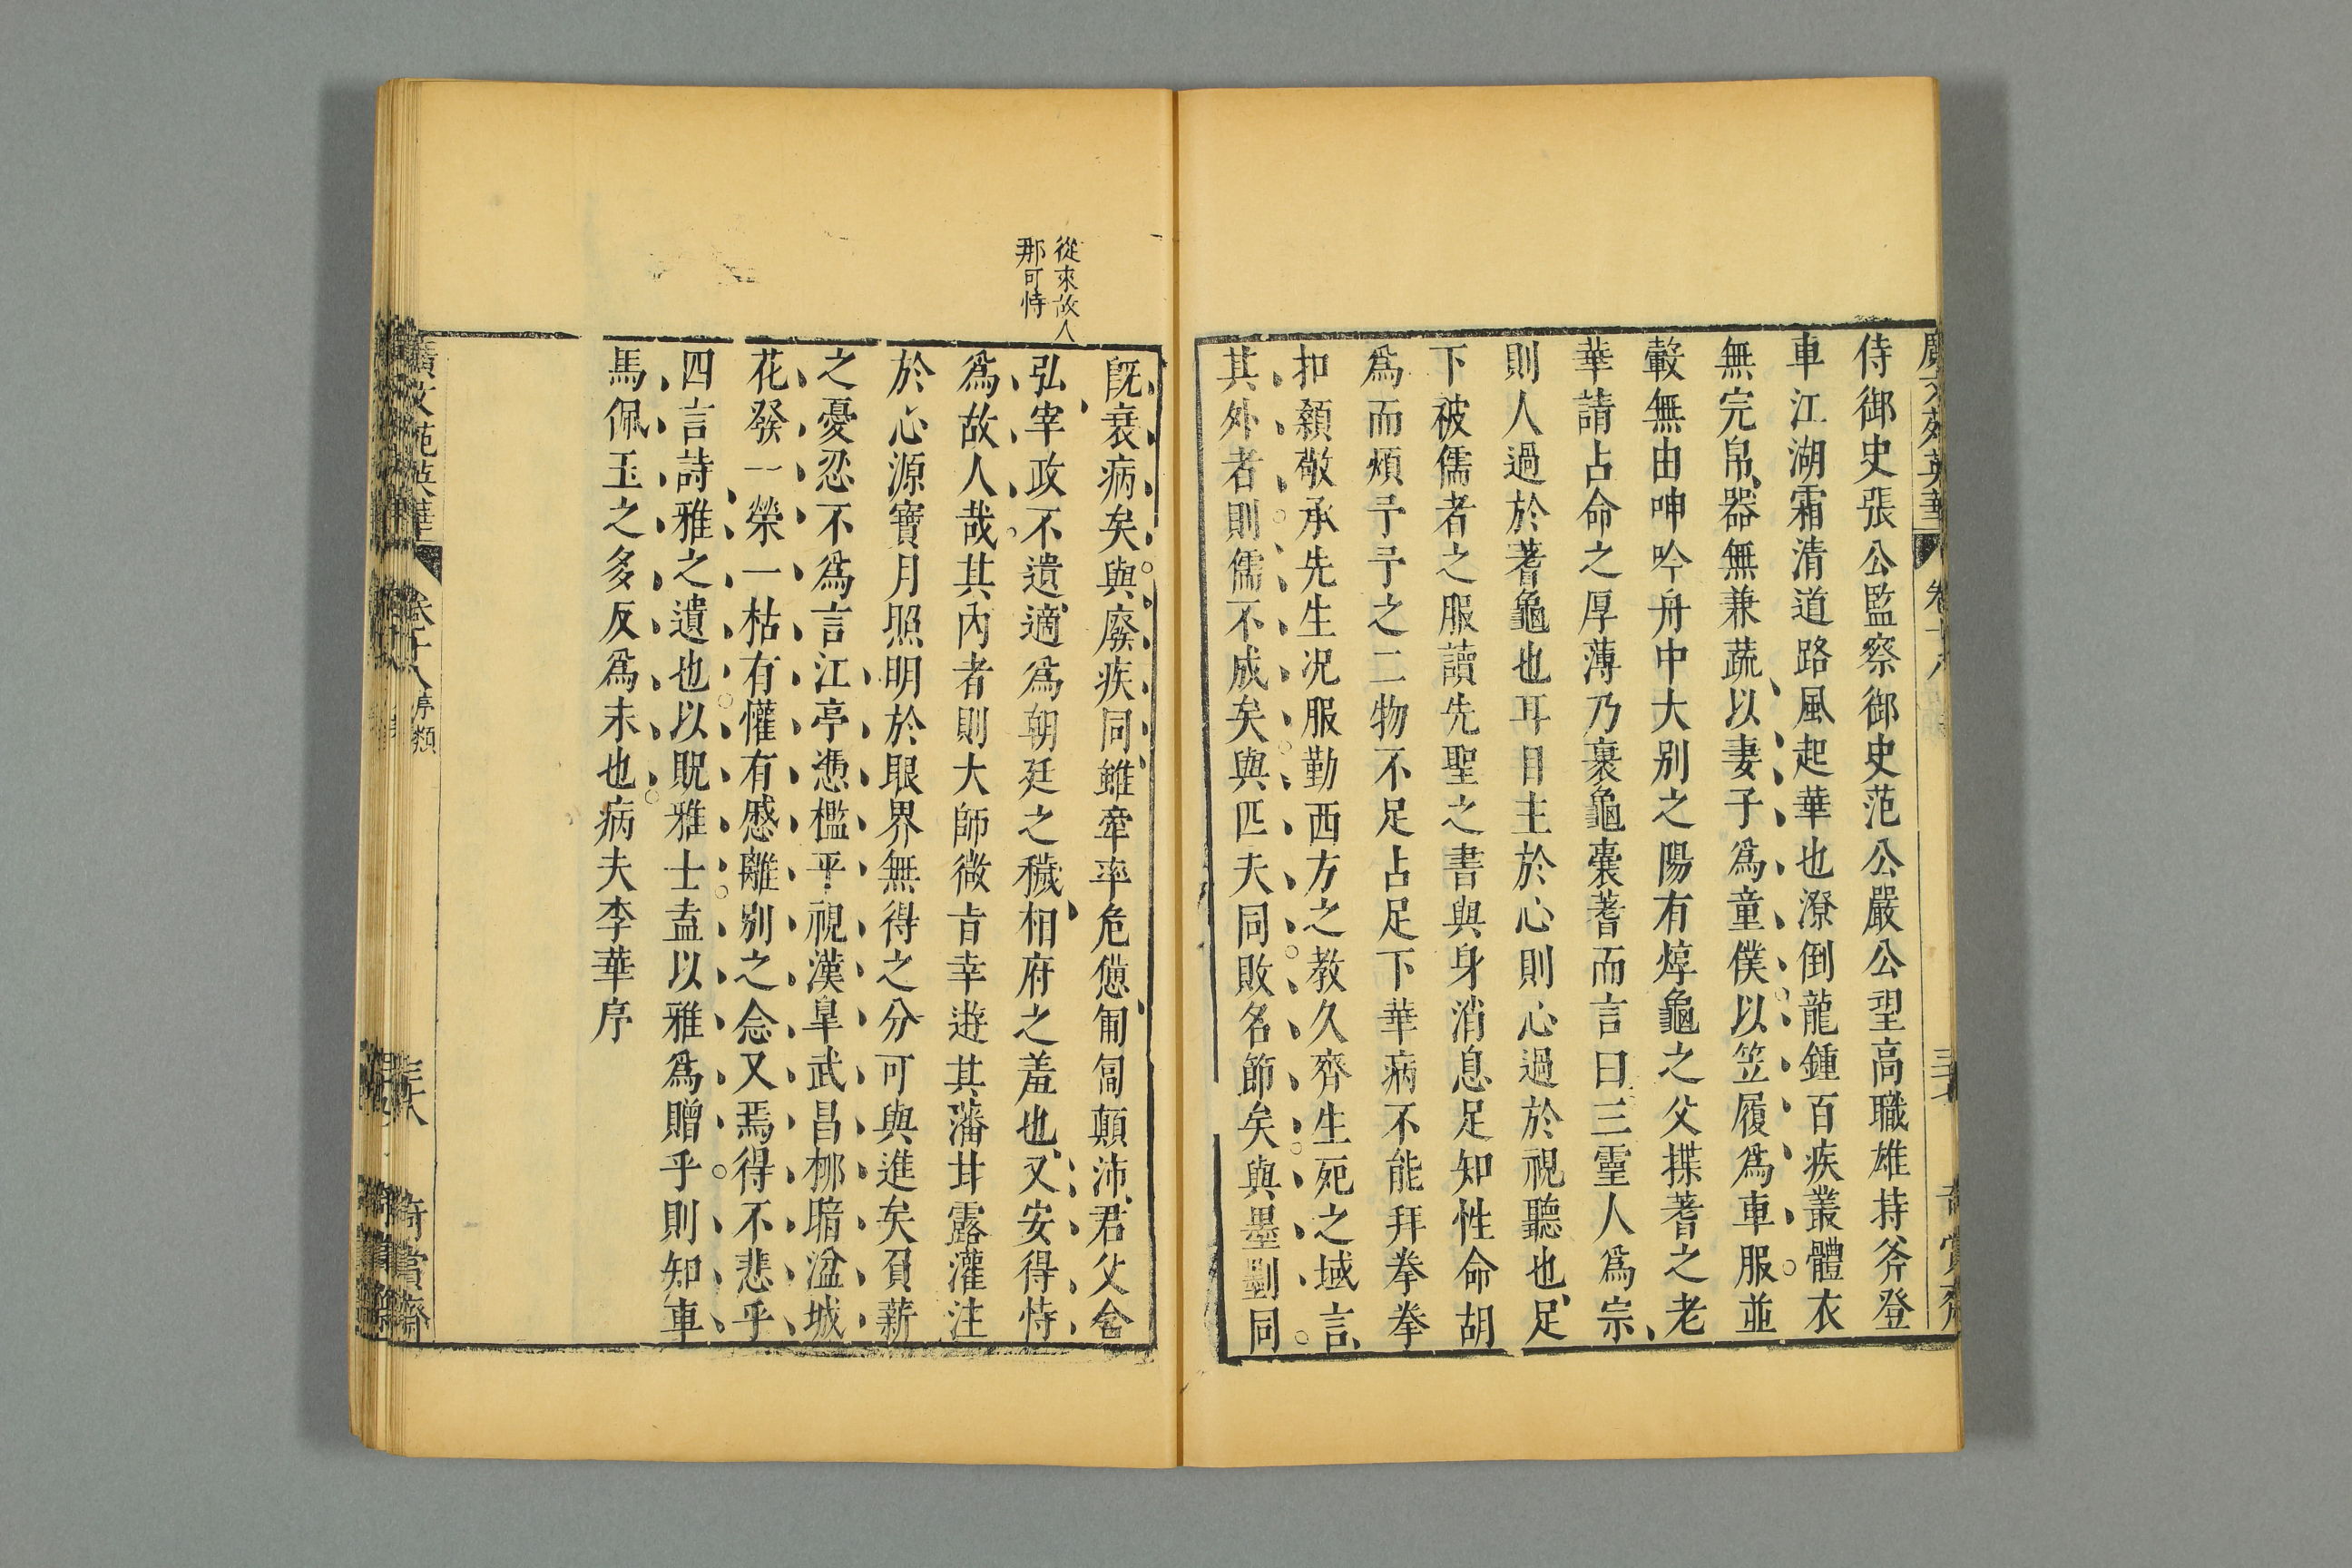 侍御史張公監察御史范公嚴公望高職雄持斧登
車江湖霜清道路風起華也潦倒龍鍾百疾叢體衣
無完帛器無兼蔬以妻子爲童僕以笠履爲車服並
轂無由呻吟舟中大別之陽有焞龜之父揲蓍之老
華請占命之厚薄乃裹龜囊蓍而言曰三靈人爲宗
則人過於蓍龜也耳目主於心則心過於視聽也足
下被儒者之服讀先聖之書與身消息足知性命胡
爲而煩予予之二物不足占足下華病不能拜拳拳
扣顙敬承先生况服勤西方之教久齊生死之域言
其外者則儒不成矣與匹夫同敗名節矣與墨劓同
從來故人
那可恃
旣衰病矣與廢疾同雖牽率危憊匍匐顛沛君父含
弘宰政不遺適爲朝廷之穢相府之羞也又安得恃
爲故人哉其內者則大師微旨幸遊其藩甘露灌注
於心源寶月照明於眼界無得之分可與進矣負薪
之憂忍不爲言江亭憑檻平視漢臯武昌栁暗湓城
花發一榮一枯有懽有慼離別之念又焉得不悲乎
四言詩雅之遺也以貺雅士盍以雅爲贈乎則知車
馬佩玉之多反爲末也病夫李華序
廣文苑英華
卷十八
序類
三十八
奇賞齋